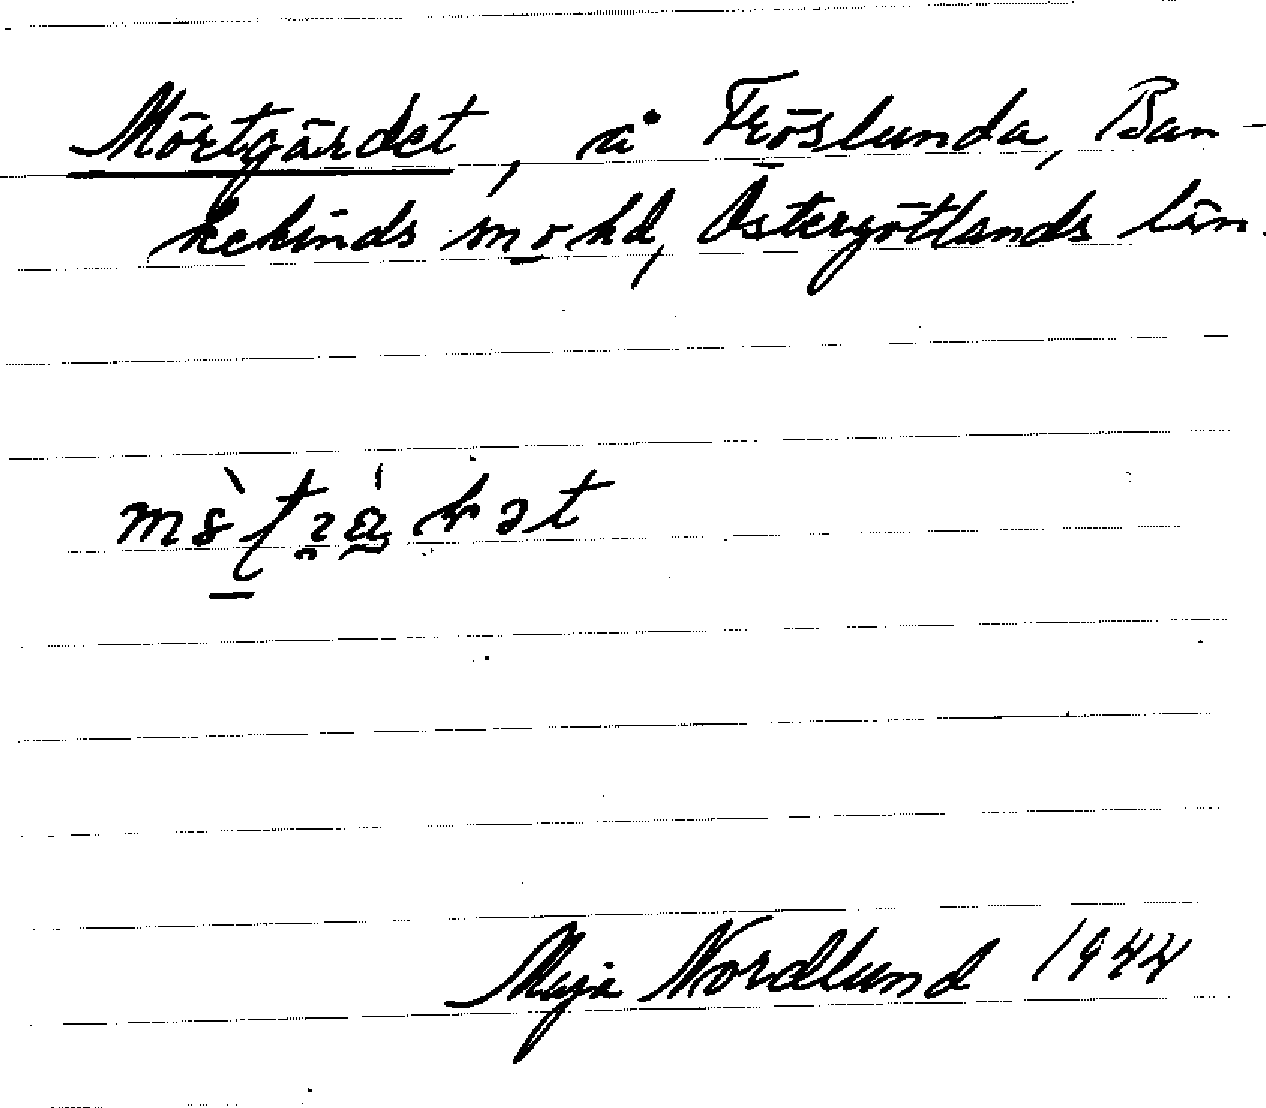 Mörtgärdet, å Fröslunda, Ban-
kekinds sn o hd, Östergötlands län.
Maja Nordlund 1944